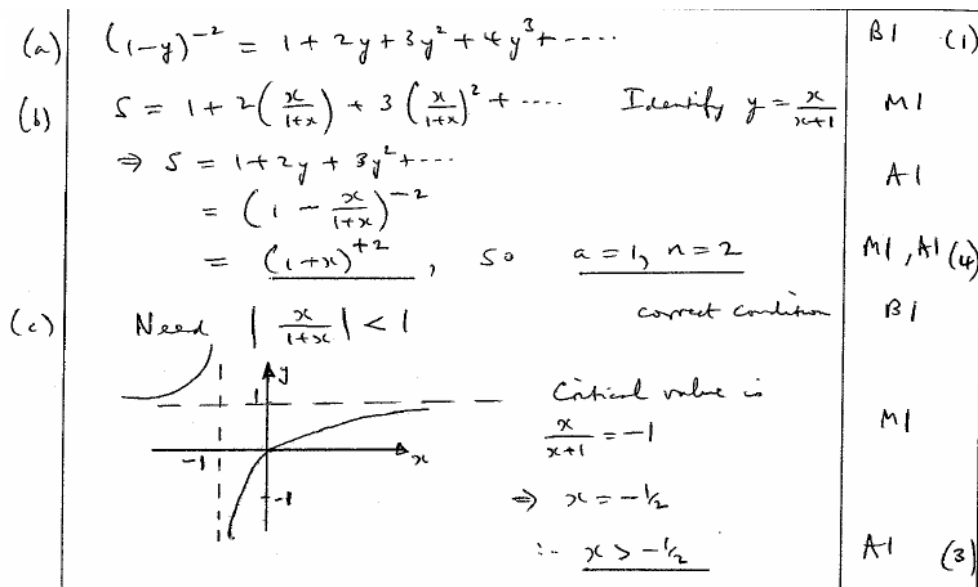 (a) (1-y)^{-2} = 1 + 2y + 3y^2 + 4y^3 + ---- B1 (1)
(b) S = 1 + 2(x/(1+x)) + 3(x/(1+x))^2 + ---- Identify y = x/(x+1) M1
⇒ S = 1 + 2y + 3y^2 + ---- A1
= (1 - x/(1+x))^{-2}
= (1+x)^{+2}, so a = 1, n = 2 M1, A1 (4)
(c) Need |x/(1+x)| < 1 correct condition B1
y
1
-1
x
-1
Critical value is
x/(x+1) = -1 M1
⇒ x = -1/2
∴ x > -1/2 A1 (3)